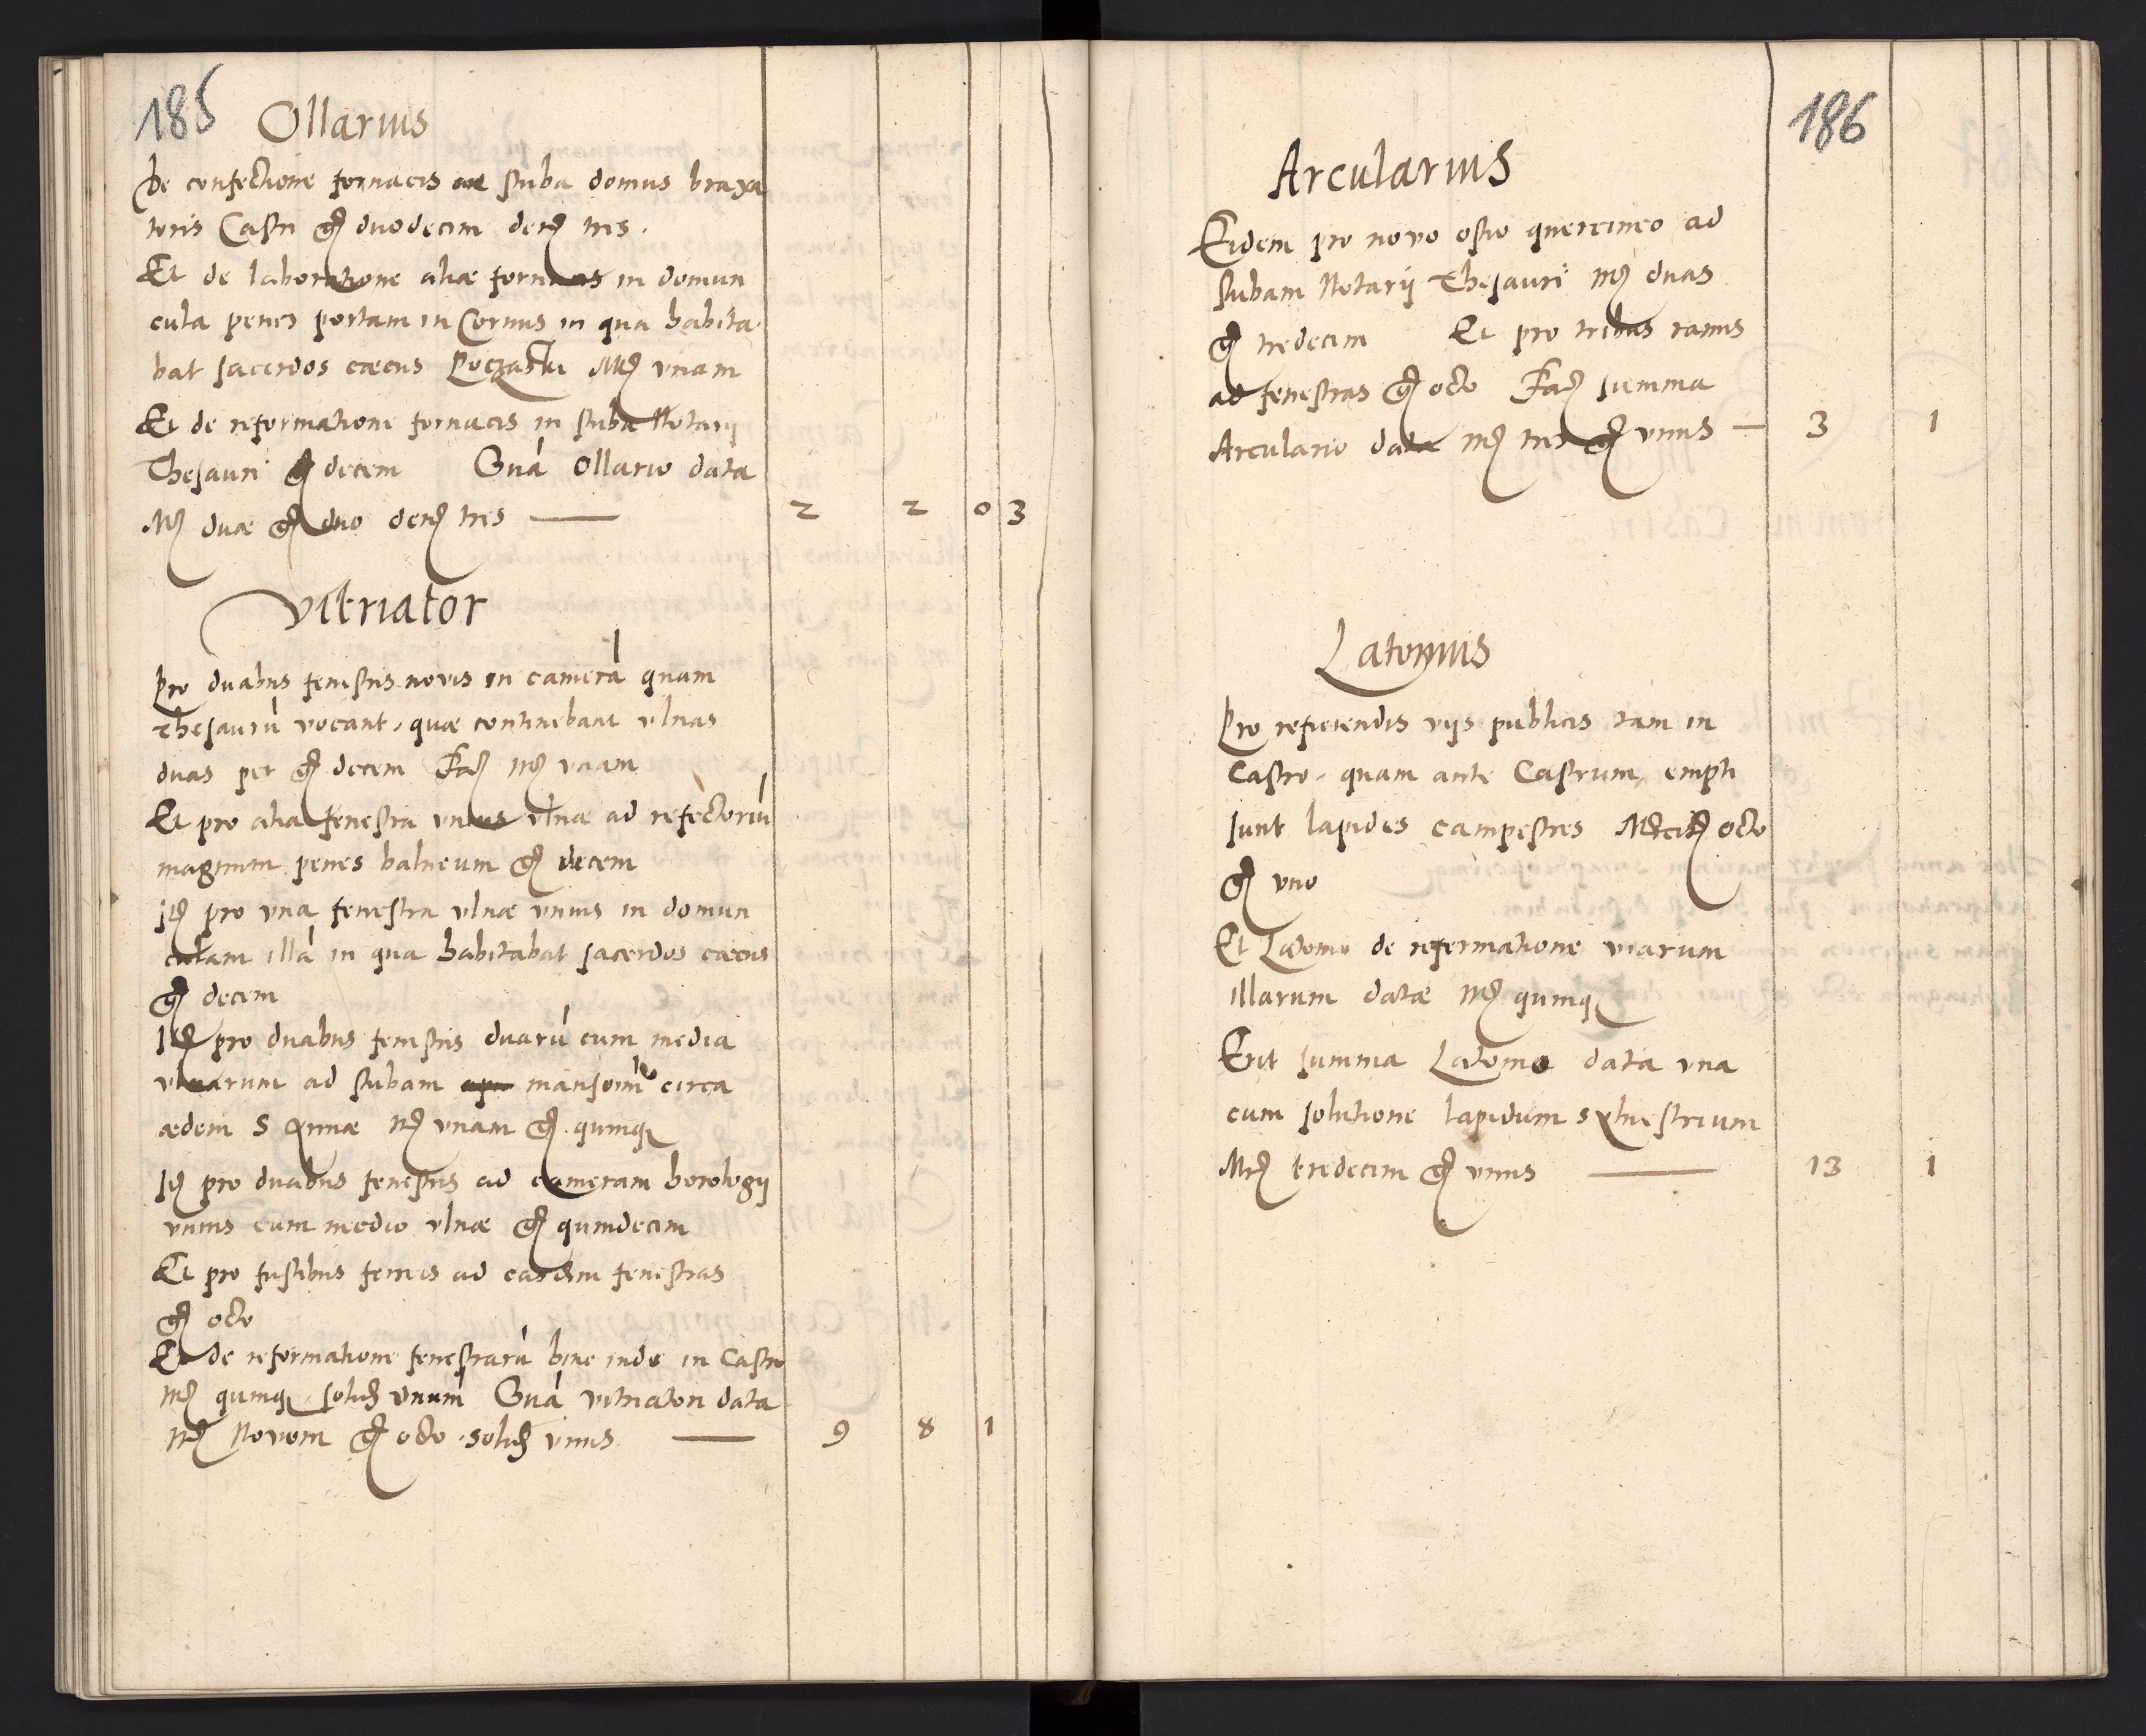 185
Ollarius
De confectione fornacis stuba domus braxa
toris Castri gr duodecim deñ tres.
Et de laboratione aliæ fornacis in domun
cula penes portam in Cornus in qua habita
bat sacerdos cæcus Mr vnam
Et de reformatione fornacis in stuba Notarij
Thesauri gr decem Sũa Ollario data
Mr duæ gr duo deñ tres — 2 2 0 3
Vitriator
Pro duabus fenestris novis in camerá quam
Thesaurú vocant, quæ continebant vlnas
duas per gr decem Fac̃ Mr vnam
Et pro alia fenestra vnius vlnæ ad refectoriú
magnum penes balneum gr decem
Itẽ pro vna fenestra vlnæ vnius in domun
culam illá in qua habitabat sacerdos cæcus
gr decem
Itẽ pro duabus fenestris duarú cum media
vlnarum ad stubam circa
ædem S Annæ Mr vnam gr quinq
Itẽ pro duabus fenestris ad cameram horologij
vnius cum medio vlnæ gr quindecim
Et pro fustibus ferreis ad easdem fenestras
gr octo
Et de reformatione fenestrarú hinc inde in Castro
Mr quinq solid vnum Sũa vitriatori data
Mr Novem gr octo solid vnus — 9 8 1
186
Arcularius
Eidem pro novo ostio querceineo ad
stubam Notarij Thesauri Mr duas
gr tredecim Et pro tribus ramis
ad fenestras gr octo Fac̃ summa
Arculario data Mr tres gr vnus — 3 1
Latomus
Pro reficiendis vijs publicis tam in
Castro, quam ante Castrum, empti
sunt lapides campestres octo
gr vno
Et Latomo de reformatione viarum
illarum datæ Mr quinq
Erit summa Latomo data vna
cum solutione lapidum sylvestrium
Mr tredecim gr vnus — 13 1